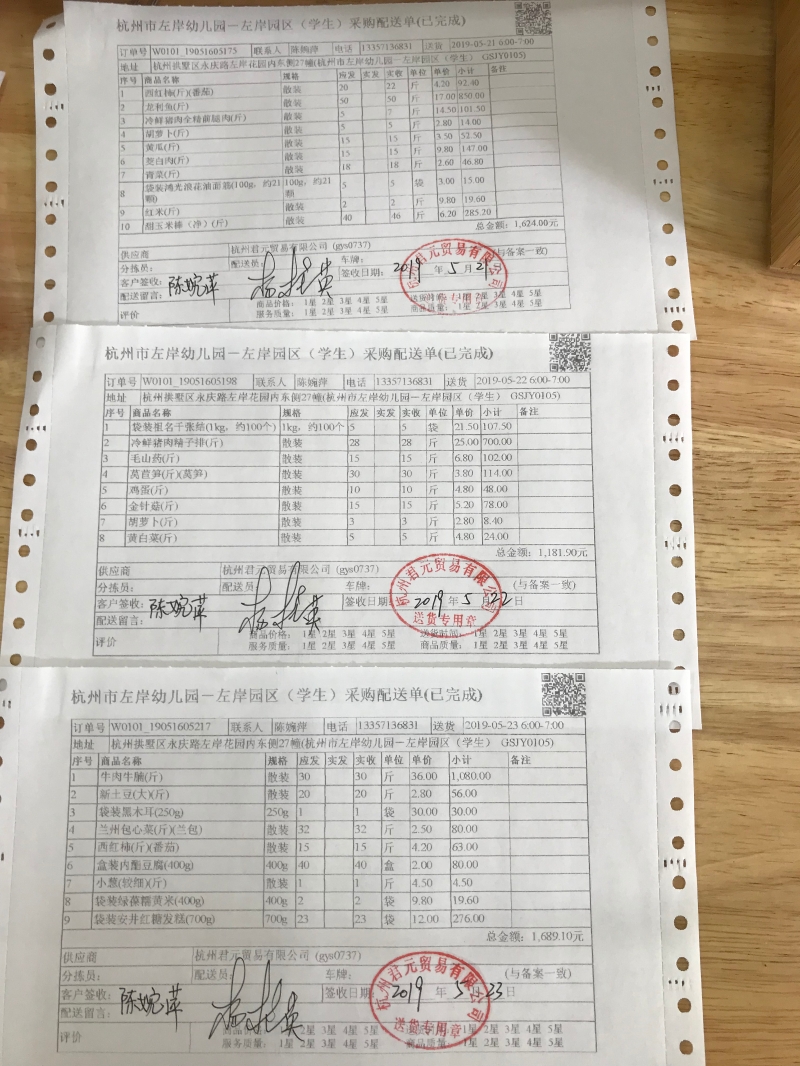 杭州市左岸幼儿园－左岸园区（学生）采购配送单(已完成)
订单号 W0101_19051605175 联系人 陈婉萍 电话 13357136831 送货 2019-05-21 6:00-7:00
地址 杭州拱墅区永庆路左岸花园内东侧27幢(杭州市左岸幼儿园－左岸园区（学生） GSJY0105)
序号 商品名称 规格 应发 实发 实收 单位 单价 小计 备注
1 西红柿(斤)(番茄) 散装 20 22 斤 4.20 92.40
2 龙利鱼(斤) 散装 50 50 斤 17.00 850.00
3 冷鲜猪肉全精前腿肉(斤) 散装 5 7 斤 14.50 101.50
4 胡萝卜(斤) 散装 5 5 斤 2.80 14.00
5 黄瓜(斤) 散装 15 15 斤 3.50 52.50
6 茭白肉(斤) 散装 15 15 斤 9.80 147.00
7 青菜(斤) 散装 18 18 斤 2.60 46.80
8 袋装鸿光浪花油面筋(100g，约21颗) 100g，约21颗 5 5 袋 3.00 15.00
9 红米(斤) 散装 2 2 斤 9.80 19.60
10 甜玉米棒（净）(斤) 散装 40 46 斤 6.20 285.20
总金额：1,624.00元
供应商 杭州君元贸易有限公司 (gys0737)
分拣员： 配送员： 车牌： (与备案一致)
客户签收：陈婉萍 签收日期： 2019 年 5 月 21
配送留言：
评价 商品价格： 1星 2星 3星 4星 5星 送货时间： 1星 2星 3星 4星 5星
服务质量： 1星 2星 3星 4星 5星 商品质量： 1星 2星 3星 4星 5星
杭州市左岸幼儿园－左岸园区（学生）采购配送单(已完成)
订单号 W0101_19051605198 联系人 陈婉萍 电话 13357136831 送货 2019-05-22 6:00-7:00
地址 杭州拱墅区永庆路左岸花园内东侧27幢(杭州市左岸幼儿园－左岸园区（学生） GSJY0105)
序号 商品名称 规格 应发 实发 实收 单位 单价 小计 备注
1 袋装祖名千张结(1kg，约100个) 1kg，约100个 5 5 袋 21.50 107.50
2 冷鲜猪肉精子排(斤) 散装 28 28 斤 25.00 700.00
3 毛山药(斤) 散装 15 15 斤 6.80 102.00
4 莴苣笋(斤)(莴笋) 散装 30 30 斤 3.80 114.00
5 鸡蛋(斤) 散装 10 10 斤 4.80 48.00
6 金针菇(斤) 散装 15 15 斤 5.20 78.00
7 胡萝卜(斤) 散装 3 3 斤 2.80 8.40
8 黄白菜(斤) 散装 5 5 斤 4.80 24.00
总金额：1,181.90元
供应商 杭州君元贸易有限公司 (gys0737)
分拣员： 配送员 车牌： (与备案一致)
客户签收：陈婉萍 签收日期 2019 年 5 月 22 日
配送留言：
杭州君元贸易有限公司
送货专用章
评价 商品价格： 1星 2星 3星 4星 5星 送货时间： 1星 2星 3星 4星 5星
服务质量： 1星 2星 3星 4星 5星 商品质量： 1星 2星 3星 4星 5星
杭州市左岸幼儿园－左岸园区（学生）采购配送单(已完成)
订单号 W0101_19051605217 联系人 陈婉萍 电话 13357136831 送货 2019-05-23 6:00-7:00
地址 杭州拱墅区永庆路左岸花园内东侧27幢(杭州市左岸幼儿园－左岸园区（学生） GSJY0105)
序号 商品名称 规格 应发 实发 实收 单位 单价 小计 备注
1 牛肉牛腩(斤) 散装 30 30 斤 36.00 1,080.00
2 新土豆(大)(斤) 散装 20 20 斤 2.80 56.00
3 袋装黑木耳(250g) 250g 1 1 袋 30.00 30.00
4 兰州包心菜(斤)(兰包) 散装 32 32 斤 2.50 80.00
5 西红柿(斤)(番茄) 散装 15 15 斤 4.20 63.00
6 盒装内酯豆腐(400g) 400g 40 40 盒 2.00 80.00
7 小葱(较细)(斤) 散装 1 1 斤 4.50 4.50
8 袋装绿葆糖黄米(400g) 400g 2 2 袋 9.80 19.60
9 袋装安井红糖发糕(700g) 700g 23 23 袋 12.00 276.00
总金额：1,689.10元
供应商 杭州君元贸易有限公司 (gys0737)
分拣员： 配送员： 车牌： (与备案一致)
客户签收：陈婉萍 签收日期 2019 年 5 23日
配送留言：
杭州君元贸易有限公司
送货专用章
评价 1星 2星 3星 4星 5星 1星 2星 3星 4星 5星
服务质量： 1星 2星 3星 4星 5星 商品质量： 1星 2星 3星 4星 5星